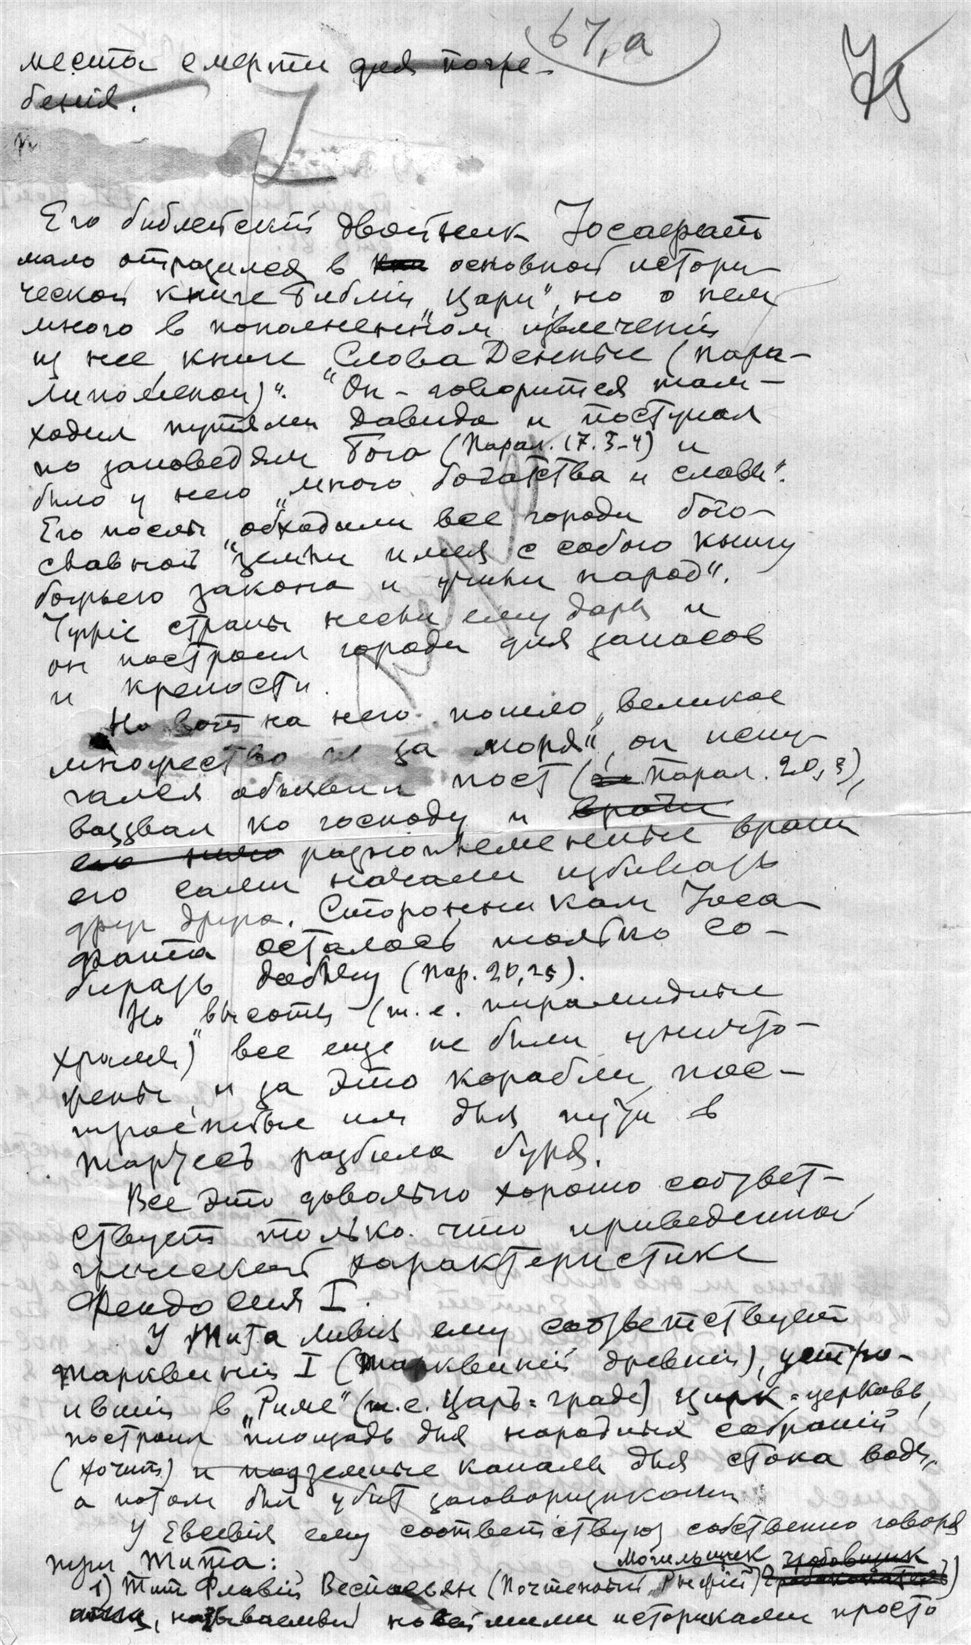 67,а
75
места смерти для погре-
бенія.
Его библейский двойник Іосафат
мало отразился в основной истори-
ческой книге Библіи „Цари", но о нем
много в пополненном извлечении
из нее, книге „Слова Денные (Пара-
липоменон)". "Он - говорится там -
ходил путями Давида и поступал
по заповедям Бога (Парал. 17. 3-4) и
было у него „много богатства и славы".
Его послы „обходили все города бого-
славной земли имея с собою книгу
божьего закона и учили народ".
Чужіе страны несли ему дары и
он построил города для запасов
и крепости.
Но вот на него пошло „великое
множество из за моря", он испу-
гался объявил пост (Парал. 20,3),
воззвал ко господу и враги
его разноплеменные враги
его сами начали избивать
друг друга. Сторонникам Іоса-
фата осталось только со-
бирать добычу (Пар. 20,25).
Но „высоты (т.е. пирамидные
храмы)" все еще не были уничто-
жены, и за это корабли, пос-
троенные им для пути в
Тарсис разбила буря.
Все это довольно хорошо соответ-
ствует только что приведенной
греческой характеристике
Феодосия I.
У Тита Ливия ему соответствует
Тарквиній I (Тарквиній древній), устро-
ившій в „Риме" (т.е. Царь-граде) цирк-церковь,
построил площадь для народных собраній
и подземные каналы для стока воды,
а потом был убит заговорщиками
У Евсевія ему соответствуют собственно говоря
три Тита:
Могильщик гробовщик
1) Тит Флавій Веспасьян (Почтенный, Рыжій)
называемый новейшими историками просто